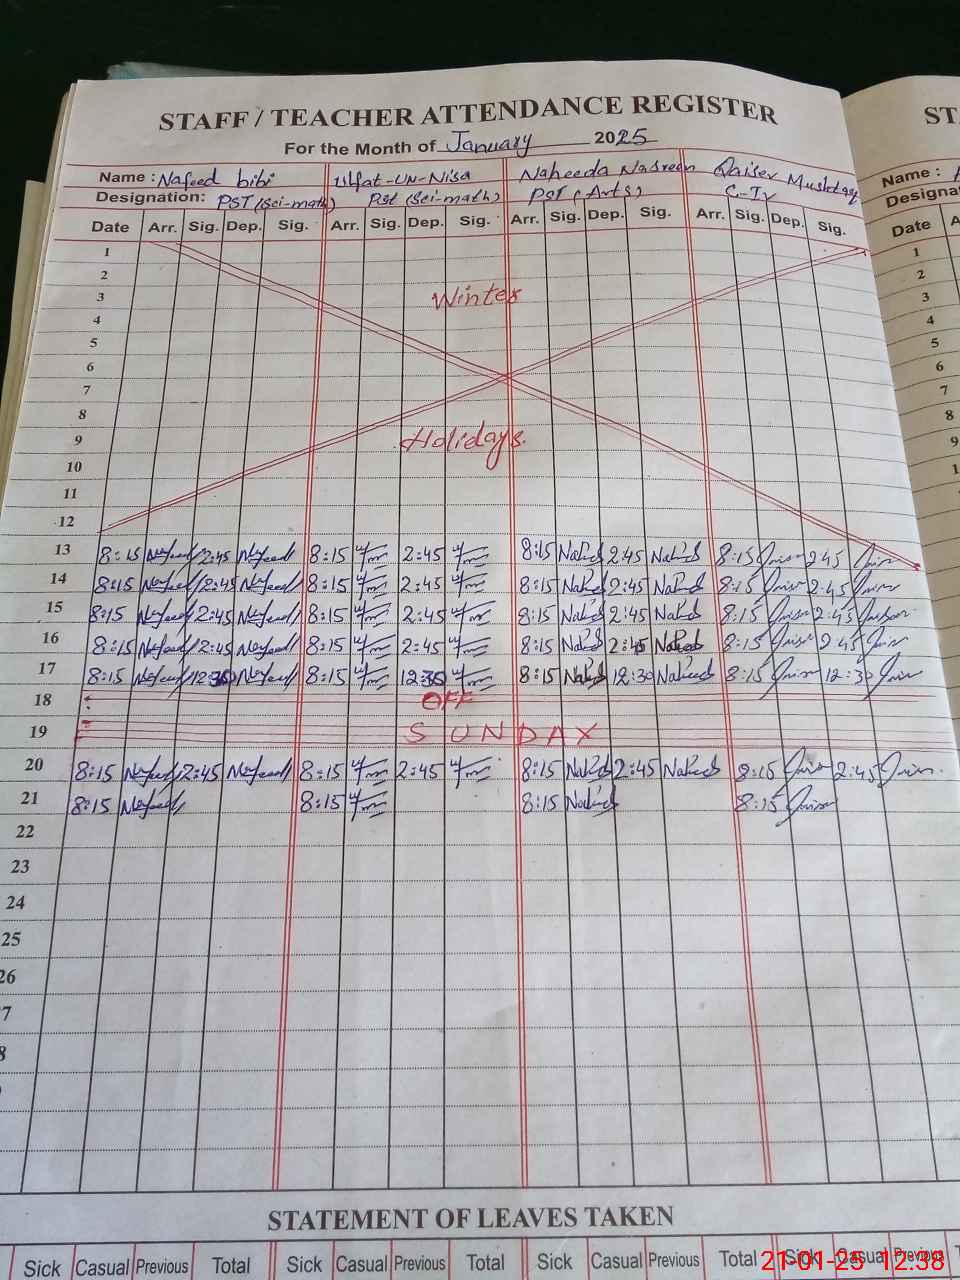 STAFF / TEACHER ATTENDANCE REGISTER ST
For the Month of January 2025
Name : Nafeed bibi Ulfat-UN-Nisa Naheeda Nasreen Qaiser Mushtaq Name :
Designation: PST (Sci-math) Pst (Sci-math) PST (Arts) C-IV Designation
Date Arr. Sig. Dep. Sig. Arr. Sig. Dep. Sig. Arr. Sig. Dep. Sig. Arr. Sig. Dep. Sig. Date A
1 1
2 2
3 Winter 3
4 4
5 5
6 6
7 7
8 8
9 Holidays. 9
10
11
12
13 8:15 Nafeed 2:45 Nafeed 8:15 2:45 8:15 Naheed 2:45 Naheed 8:15 2:45
14 8:15 Nafeed 2:45 Nafeed 8:15 2:45 8:15 Naheed 2:45 Naheed 8:15 2:45
15 8:15 Nafeed 2:45 Nafeed 8:15 2:45 8:15 Naheed 2:45 Naheed 8:15 2:45
16 8:15 Nafeed 2:45 Nafeed 8:15 2:45 8:15 Naheed 2:45 Naheed 8:15 2:45
17 8:15 Nafeed 12:30 Nafeed 8:15 12:30 8:15 Naheed 12:30 Naheed 8:15 12:30
18 OFF
19 SUNDAY
20 8:15 Nafeed 2:45 Nafeed 8:15 2:45 8:15 Naheed 2:45 Naheed 8:15 2:45
21 8:15 Nafeed 8:15 8:15 Naheed 8:15
22
23
24
25
26
7
8
STATEMENT OF LEAVES TAKEN
Sick Casual Previous Total Sick Casual Previous Total Sick Casual Previous Total Sick Casual Previous
21-01-25 12:38